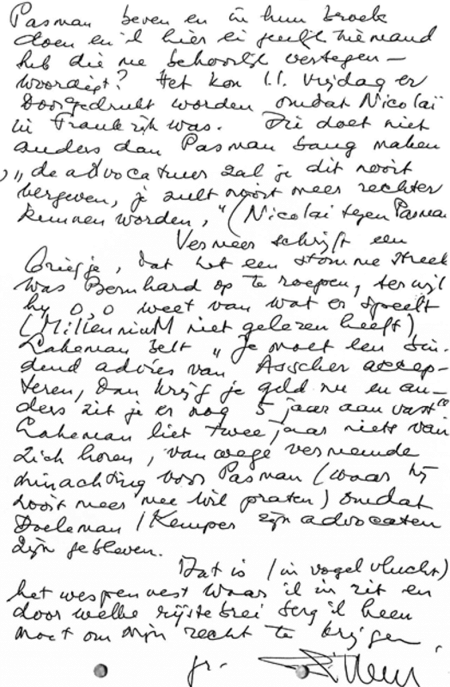 Pasman beven en in hun broek
doen en ik hier in feite niemand
heb die me behoorlijk vertegen-
woordigt? Het kon l.l. vrijdag er
doorgedrukt worden omdat Nicolaï
in Frankrijk was. Die doet niet
anders dan Pasman bang maken
„de advocatuur zal je dit nooit
vergeven, je zult nooit meer rechter
kunnen worden," (Nicolai tegen Pasman
Vermeer schrijft een
briefje, dat het een stomme streek
was Bernhard op te roepen, terwijl
hij 0,0 weet van wat er speelt
(Millennium niet gelezen heeft)
Lakeman belt „Je moet een bin-
dend advies van Asscher accep-
teren, dan krijg je geld nu en an-
ders zit je er nog 5 jaar aan vast"
Lakeman liet twee jaar niets van
zich horen, vanwege vermeende
minachting voor Pasman (waar hij
nooit meer mee wil praten) omdat
Doeleman / Kemper zijn advocaten
zijn gebleven.
Dat is (in vogelvlucht)
het wespennest waar ik in zit en
door welke rijstebrei berg ik heen
moet om mijn recht te krijgen
gr.